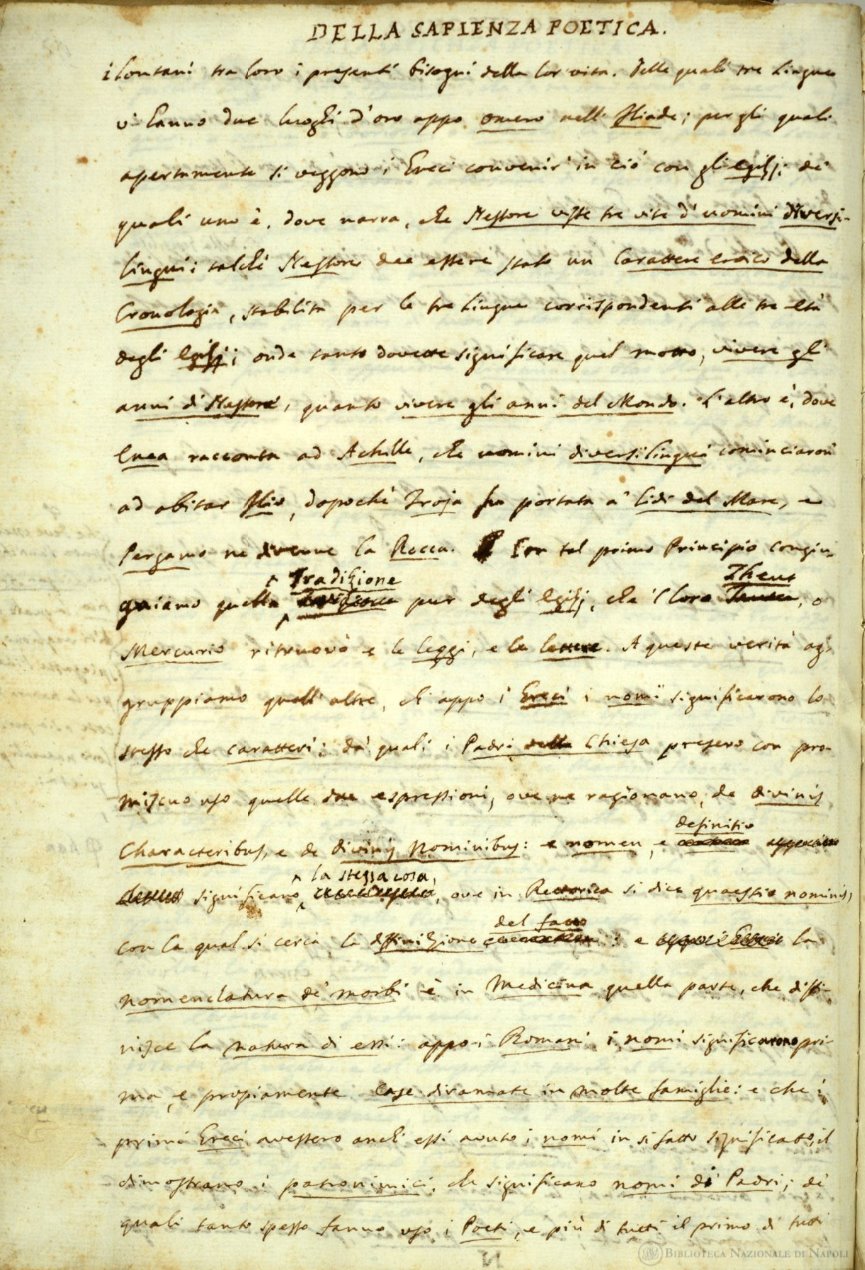 DELLA SAPIENZA POETICA.
i lontani tra loro i presenti bisogni della lor vita. Delle quali tre Lingue
v' hanno due luoghi d'oro appo Omero nell' Iliade; per gli quali
apertamente si veggono i Greci convenir' in ciò con gli Egizj: de'
quali uno è, dove narra, che Nestore visse tre vite d'uomini diversi-
lingui: talchè Nestore dee essere stato un Carattere eroico della
Cronologia, stabilita per le tre Lingue corrispondenti alle tre età
degli Egizj; onde tanto dovette significare quel motto, vivere gli
anni di Nestore, quanto vivere gli anni del Mondo. L'altro è, dove
Enea racconta ad Achille, che uomini diversilingui cominciaron
ad abitar Ilio, dopochè Troja fu portata a' lidi del Mare, e
Pergamo ne divenne la Rocca. Con tal primo Principio congiu-
Tradizione
Theut
gniamo quella pur degli Egizj, che 'l loro, o
Mercurio ritruovò e le leggi, e le lettere. A queste verità ag-
gruppiamo quell' altre, ch' appo i Greci i nomi significarono lo
stesso che caratteri; da' quali i Padri della Chiesa presero con pro-
miscuo uso quelle due espressioni, ove ne ragionano, de divinis
definitio
Characteribus, e de divinis Nominibus: e nomen, e
la stessa cosa,
significano, ove in Rettorica si dice quaestio nominis,
del fatto
con la qual si cerca la diffinizione : e la
nomenclatura de' morbi è in Medicina quella parte, che diffi-
nisce la natura di essi: appo i Romani i nomi significarono pri-
ma, e propiamente Case diramate in molte famiglie: e che i
primi Greci avessero anch' essi avuto i nomi in sì fatto significato, il
dimostrano i patronimici, ch' significano nomi di Padri; de'
quali tanto spesso fanno uso i Poeti, e più di tutti il primo di tutti
BIBLIOTECA NAZIONALE DI NAPOLI